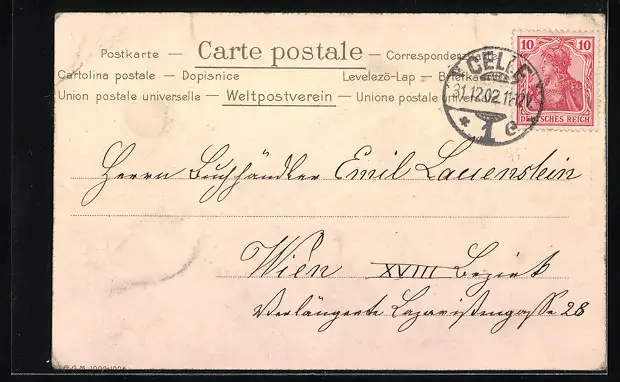 Postkarte — Carte postale — Correspondenzkarte
Cartolina postale — Dopisnice Levelezö-Lap — Briefkaart
Union postale universelle — Weltpostverein — Unione postale universale
10 10
DEUTSCHES REICH
CELLE
31.12.02.11-12V.
* 1 e *
Herrn Buchhändler Emil Lauenstein
Wien XVIII Bezirk
Verlängerte Lazaristengasse 28